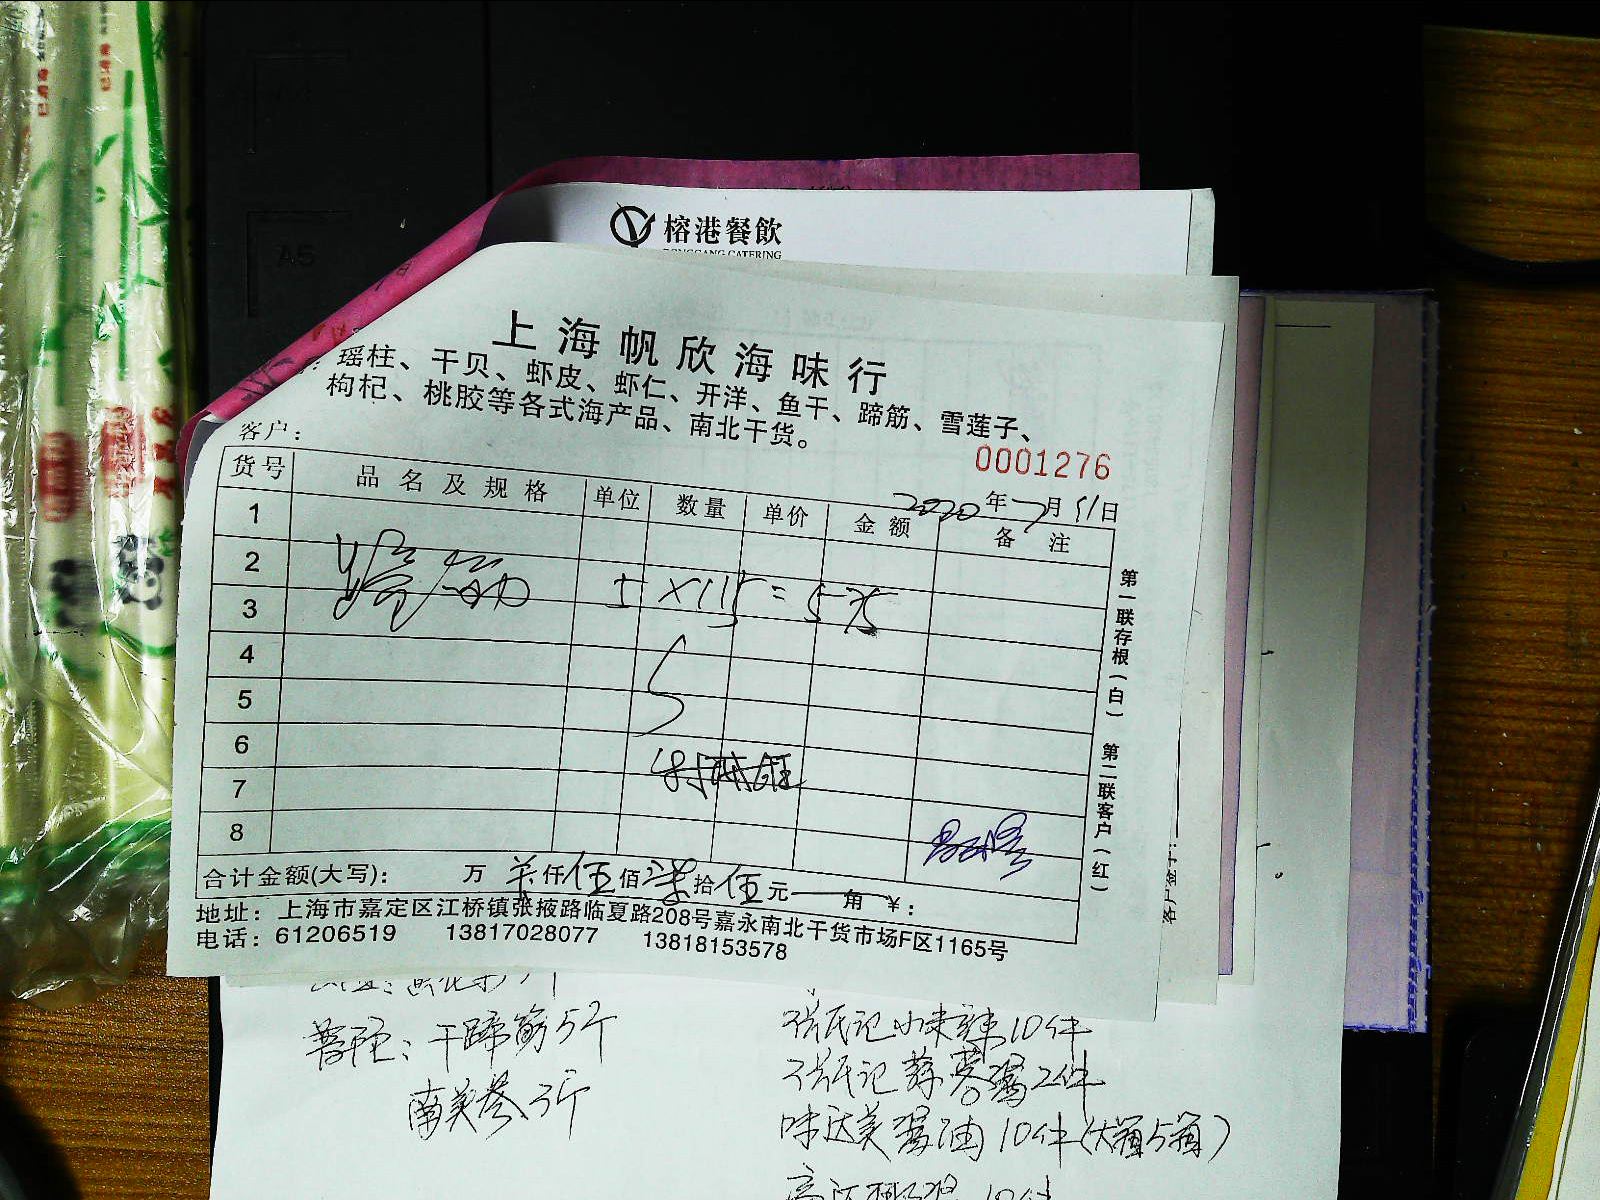 A5
榕港餐飲
RONGGANG CATERING
上海帆欣海味行
瑶柱、干贝、虾皮、虾仁、开洋、鱼干、蹄筋、雪莲子、
枸杞、桃胶等各式海产品、南北干货。
客户：
0001276
2020年7月11日
货号 品名及规格 单位 数量 单价 金额 备注
1
2
蹄筋 5 ×115=575
3
4
5
6
7
8
合计金额(大写)： 万 仟伍佰柒拾伍元 角 ￥：
地址：上海市嘉定区江桥镇张掖路临夏路208号嘉永南北干货市场F区1165号
电话：61206519 13817028077 13818153578
第一联存根（白） 第二联客户（红）
干蹄筋5斤
南美参3斤
10件
张氏记蒜蓉酱2件
味达美酱油10件(大瓶5箱)
10件